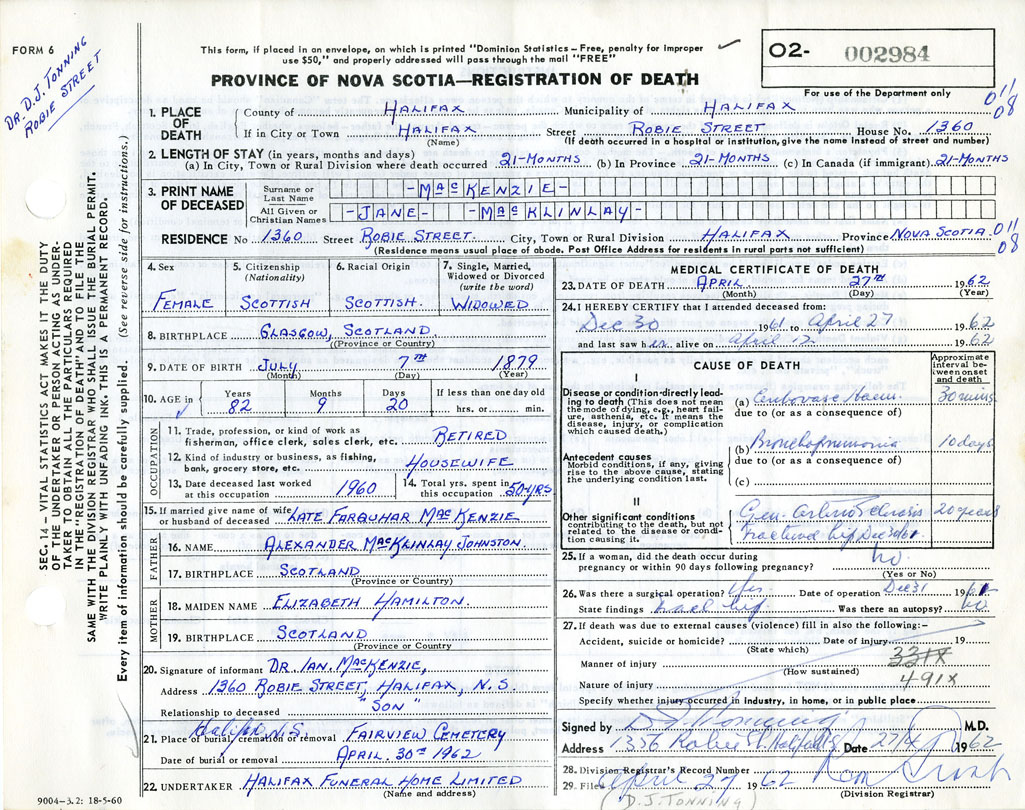 FORM 6
DR. D.J. TONNING
ROBIE STREET
This form, if placed in an envelope, on which is printed "Dominion Statistics – Free, penalty for improper
use $50," and properly addressed will pass through the mail "FREE"
PROVINCE OF NOVA SCOTIA—REGISTRATION OF DEATH
O2- 002984
For use of the Department only
011
08
1. PLACE OF DEATH
County of HALIFAX Municipality of HALIFAX
If in City or Town HALIFAX Street ROBIE STREET House No. 1360
(Name) (If death occurred in a hospital or institution, give the name instead of street and number)
2. LENGTH OF STAY (in years, months and days)
(a) In City, Town or Rural Division where death occurred 21-MONTHS (b) In Province 21-MONTHS (c) In Canada (if immigrant) 21-MONTHS
3. PRINT NAME OF DECEASED
Surname or Last Name -MACKENZIE-
All Given or Christian Names -JANE- -MACKLINLAY-
RESIDENCE No 1360 Street ROBIE STREET. City, Town or Rural Division HALIFAX Province NOVA SCOTIA. 011
08
(Residence means usual place of abode. Post Office Address for residents in rural parts not sufficient)
4. Sex
FEMALE
5. Citizenship (Nationality)
SCOTTISH
6. Racial Origin
SCOTTISH.
7. Single, Married, Widowed or Divorced (write the word)
WIDOWED
8. BIRTHPLACE GLASGOW, SCOTLAND.
(Province or Country)
9. DATE OF BIRTH JULY 7TH 1879
(Month) (Day) (Year)
10. AGE in Years Months Days If less than one day old
82 9 20 hrs. or min.
OCCUPATION
11. Trade, profession, or kind of work as
fisherman, office clerk, sales clerk, etc. RETIRED
12. Kind of industry or business, as fishing,
bank, grocery store, etc. HOUSEWIFE
13. Date deceased last worked
at this occupation 1960
14. Total yrs. spent in
this occupation 50-YRS
15. If married give name of wife
or husband of deceased LATE FARQUHAR MACKENZIE
FATHER
16. NAME ALEXANDER MACKLINLAY JOHNSTON.
17. BIRTHPLACE SCOTLAND
(Province or Country)
MOTHER
18. MAIDEN NAME ELIZABETH HAMILTON.
19. BIRTHPLACE SCOTLAND
(Province or Country
20. Signature of informant DR. IAN. MACKENZIE,
Address 1360 ROBIE STREET, HALIFAX, N.S.
Relationship to deceased "SON"
21. Place of burial, cremation or removal Halifax N.S. FAIRVIEW CEMETERY
Date of burial or removal APRIL. 30TH 1962
22. UNDERTAKER HALIFAX FUNERAL HOME LIMITED
(Name and address)
9004-3.2: 18-5-60
MEDICAL CERTIFICATE OF DEATH
23. DATE OF DEATH APRIL. 27TH 1962
(Month) (Day) (Year)
24. I HEREBY CERTIFY that I attended deceased from:
Dec 30 1961 to April 27 1962
and last saw her alive on April 12 1962
CAUSE OF DEATH
Approximate interval between onset and death
I
Disease or condition directly leading to death (This does not mean the mode of dying, e.g., heart failure, asthenia, etc. It means the disease, injury, or complication which caused death.)
(a) 30 mins
due to (or as a consequence of)
Antecedent causes
Morbid conditions, if any, giving rise to the above cause, stating the underlying condition last.
(b) Bronchopneumonia 10 days
due to (or as a consequence of)
(c)
II
Other significant conditions
contributing to the death, but not related to the disease or condition causing it.
Gen. Arteriosclerosis 20 years
Fractured hip Dec 30/61
25. If a woman, did the death occur during
pregnancy or within 90 days following pregnancy? No.
(Yes or No)
26. Was there a surgical operation? Yes Date of operation Dec 31 1961
State findings Was there an autopsy? No
27. If death was due to external causes (violence) fill in also the following:–
Accident, suicide or homicide? Date of injury 19
(State which)
Manner of injury 331X
(How sustained)
Nature of injury 491X
Specify whether injury occurred in industry, in home, or in public place
Signed by D.J. Tonning M.D.
Address 1356 Robie St. Halifax Date 27/4 1962
28. Division Registrar's Record Number
29. Filed April 27 1962
(D.J. TONNING) (Division Registrar)
SEC. 14 — VITAL STATISTICS ACT MAKES IT THE DUTY
OF THE UNDERTAKER OR PERSON ACTING AS UNDER-
TAKER TO OBTAIN ALL THE PARTICULARS REQUIRED
IN THE "REGISTRATION OF DEATH" AND TO FILE THE
SAME WITH THE DIVISION REGISTRAR WHO SHALL ISSUE THE BURIAL PERMIT.
WRITE PLAINLY WITH UNFADING INK. THIS IS A PERMANENT RECORD.
Every item of information should be carefully supplied. (See reverse side for instructions.)